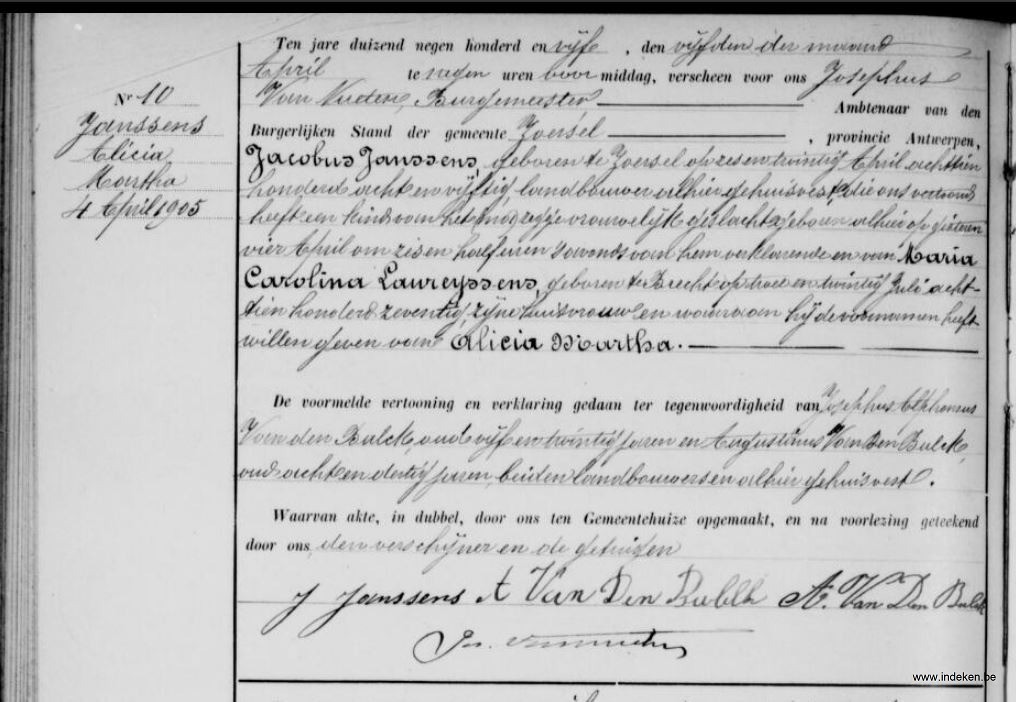 Nr 10
Janssens
Alicia
Martha
4 April 1905
Ten jare duizend negen honderd en vijf, den vijfden der maand
April te negen uren voor middag, verscheen voor ons Josephus
Van Burgemeester Ambtenaar van den
Burgerlijken Stand der gemeente Zoersel, provincie Antwerpen,
Jacobus Janssens, geboren te Zoersel op zesentwintig April achttien
honderd acht en vijftig, landbouwer alhier gehuisvest, die ons vertoond
heeft een kind van het vrouwelijk geslacht, geboren alhier op gisteren
vier April om zes en half uren s'avonds van hem verklarende en van Maria
Carolina Laureyssens, geboren te Brecht op twee en twintig Juli acht-
tien honderd zeventig, zijne huisvrouw en waaraan hij de voornamen heeft
willen geven van Alicia Martha.
De voormelde vertooning en verklaring gedaan ter tegenwoordigheid van Josephus Alphonsus
Van den Bulck, oud vijf en twintig jaren en Augustinus Van Den Bulck,
oud acht en dertig jaren, beiden landbouwers en alhier gehuisvest.
Waarvan akte, in dubbel, door ons ten Gemeentehuize opgemaakt, en na voorlezing geteekend
door ons, den verschijner en de getuigen
J Janssens A Van Den Bulck A. Van Den Bulck
www.indeken.be